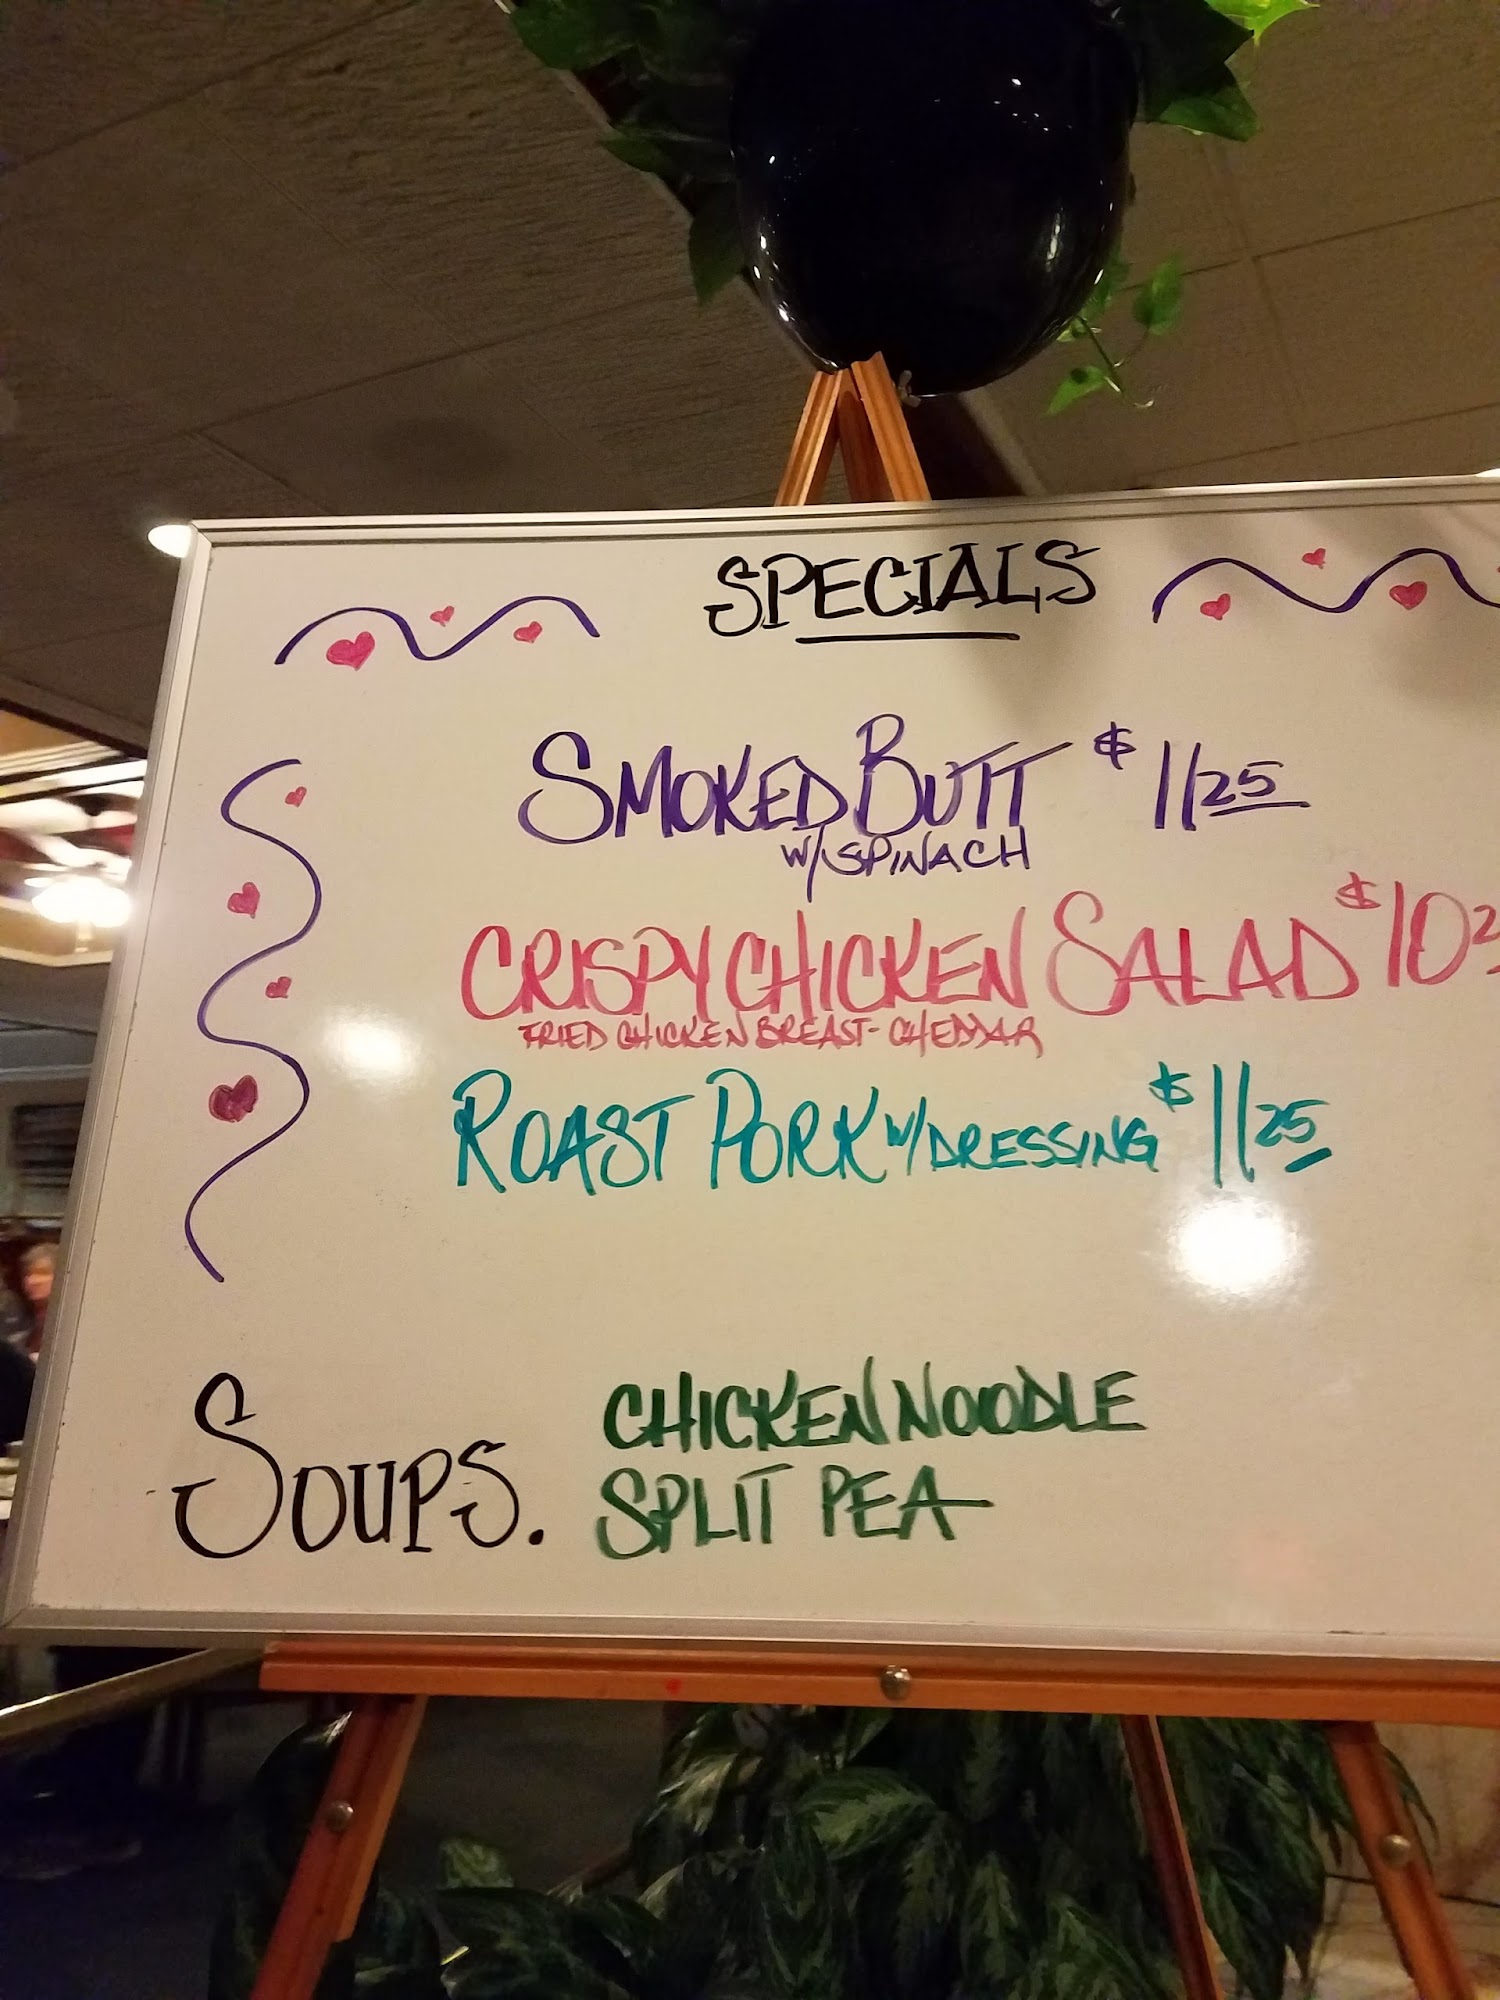 SPECIALS
SMOKED BUTT $11 25
W/SPINACH
CRISPY CHICKEN SALAD $10
FRIED CHICKEN BREAST - CHEDDAR
ROAST PORK W/DRESSING $11 25
SOUPS. CHICKEN NOODLE
SPLIT PEA